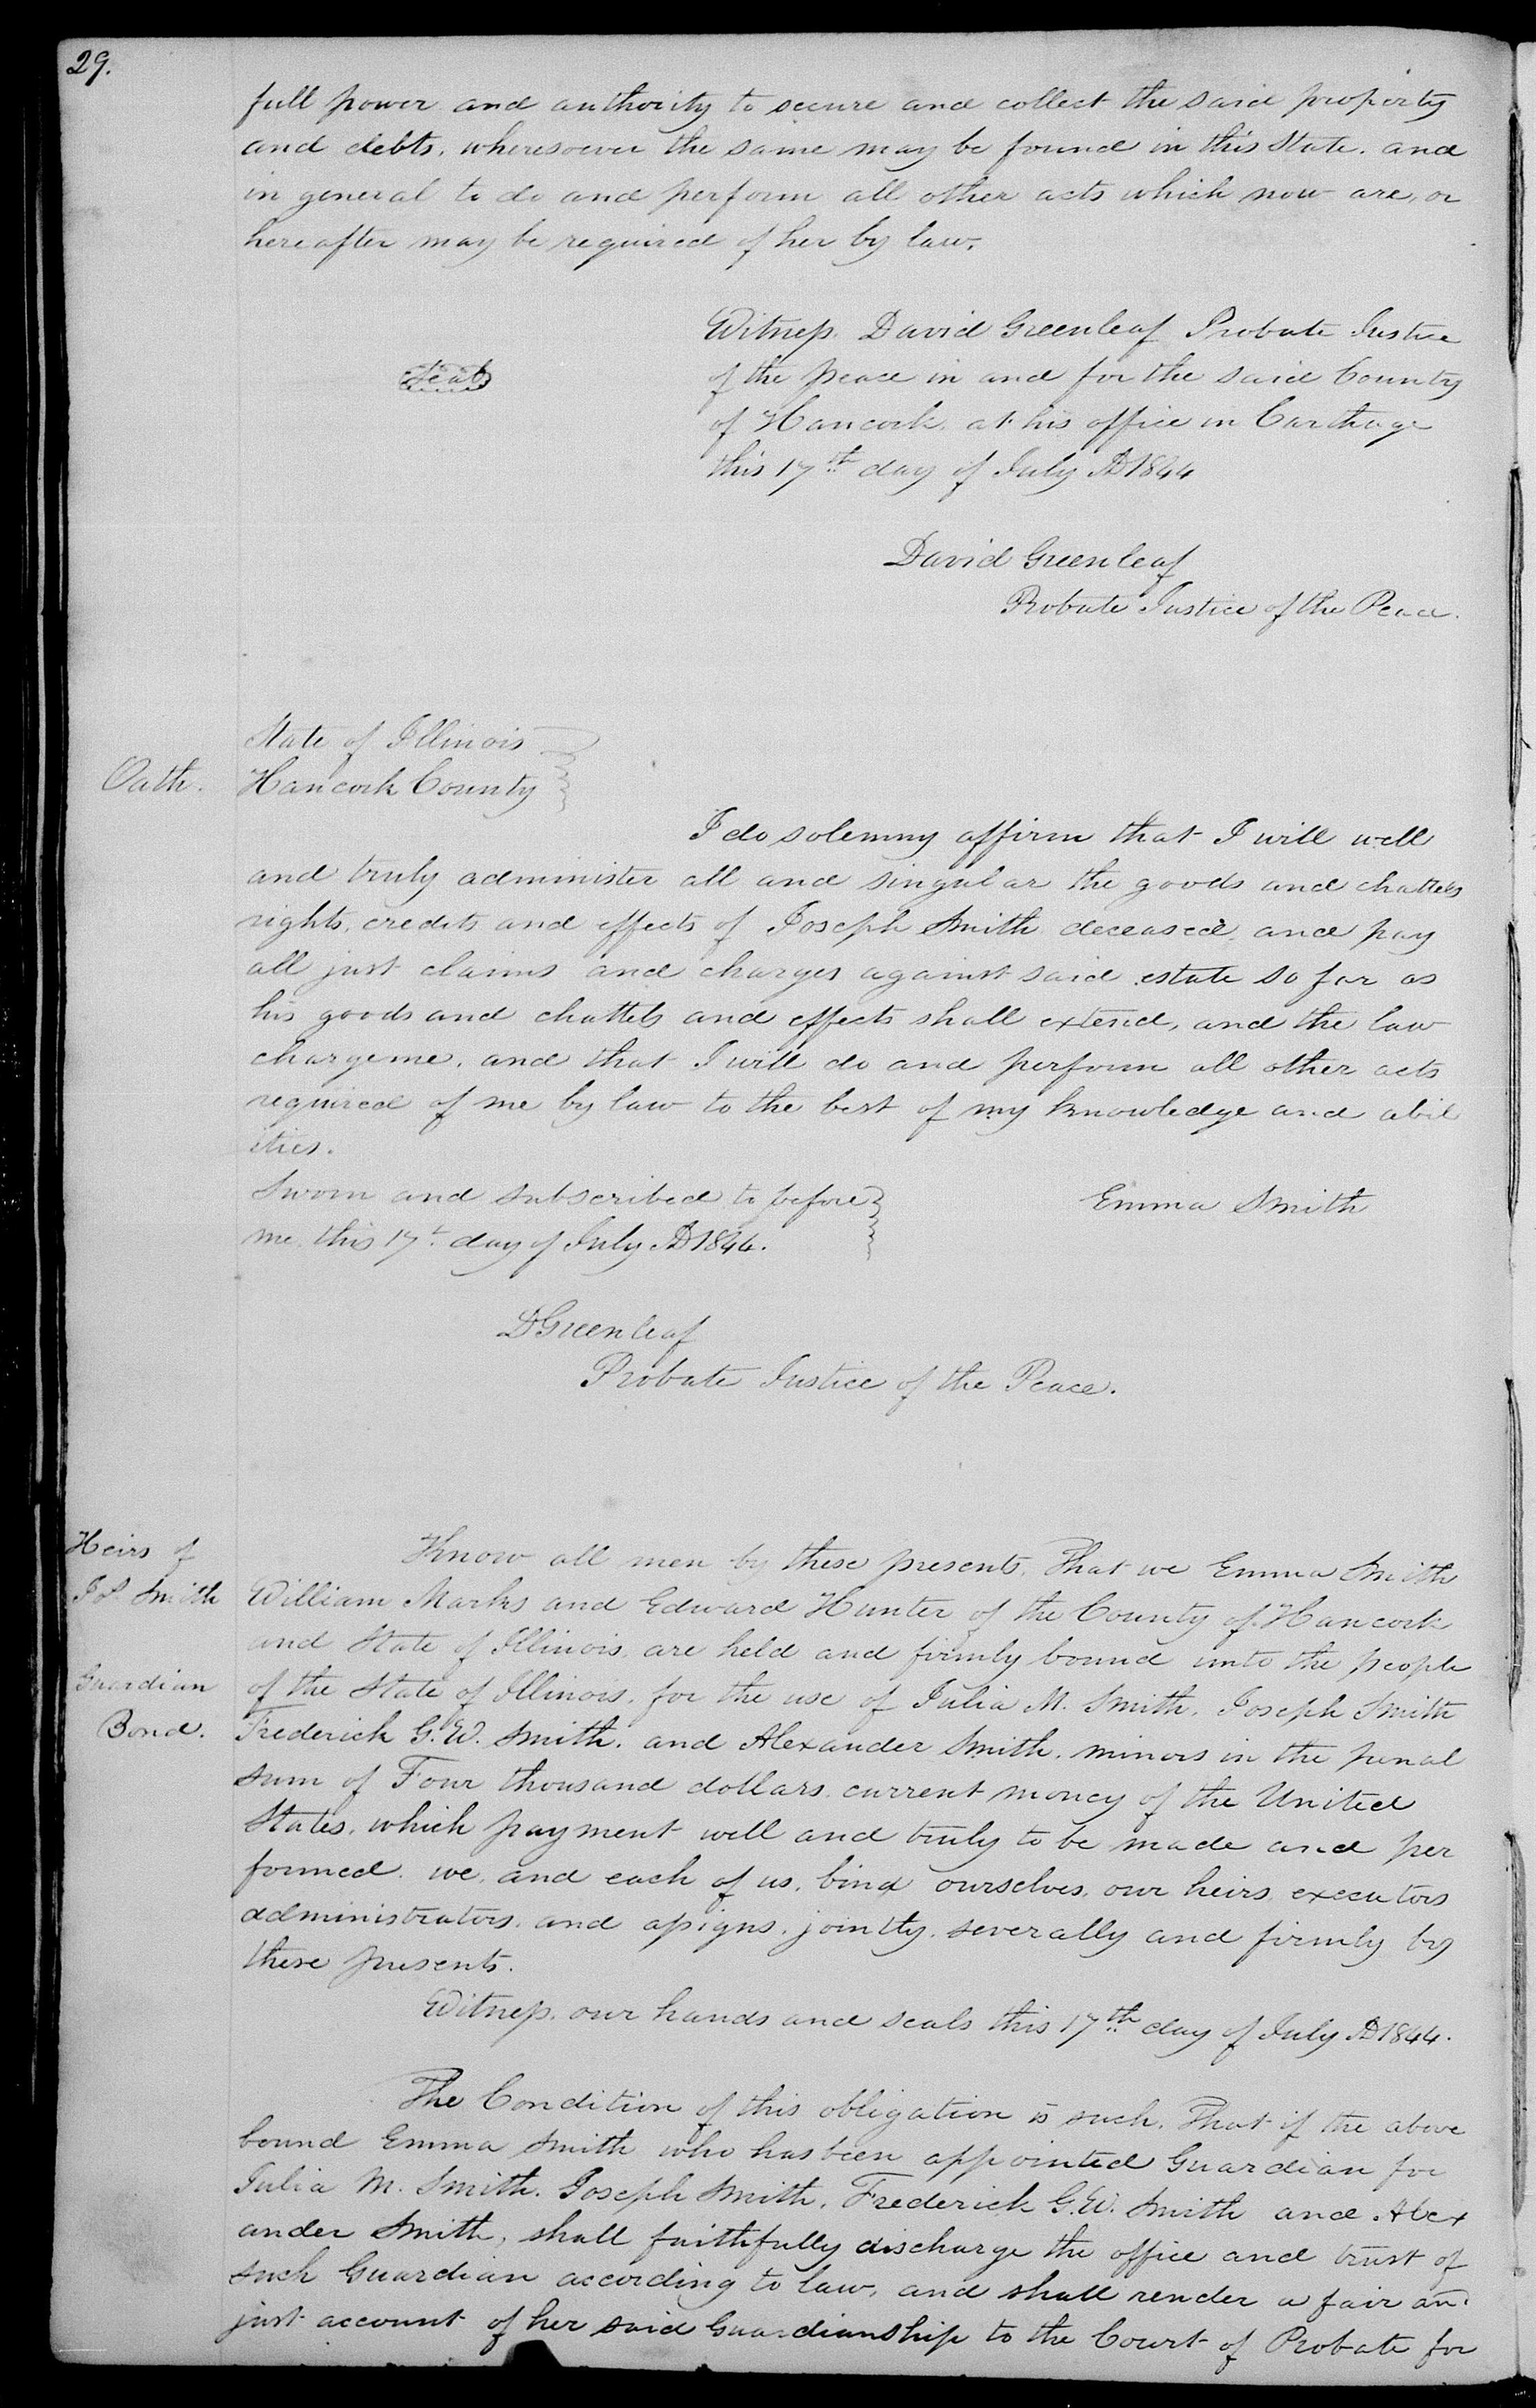 29.
full power and authority to secure and collect the said property
and debts, wheresoever the same may be found in this State. and
in general to do and perform all other acts which now are, or
hereafter may be required of her by law.
Witness. David Greenleaf Probate Justice
Seal
of the peace in and for the said County
of Hancock. at his office in Carthage
this 17th day of July AD 1844
David Greenleaf
Probate Justice of the Peace.
State of Illinois
Oath.
Hancock County
I do solemny affirm that I will well
and truly administer all and singular the goods and chattels
rights, credits and effects of Joseph Smith deceased, and pay
all just claims and charges against said estate so far as
his goods and chattels and effects shall extend, and the law
charge me, and that I will do and perform all other acts
required of me by law to the best of my knowledge and abil
ities.
Sworn and subscribed to before
me, this 17t day of July AD 1844.
Emma Smith
DGreenleaf
Probate Justice of the Peace.
Heirs of
Jos Smith
Guardian
Bond.
Know all men by these presents, That we Emma Smith
William Marks and Edward Hunter of the County of Hancock
and State of Illinois, are held and firmly bound unto the people
of the State of Illinois, for the use of Julia M. Smith, Joseph Smith
Frederick G. W. Smith, and Alexander Smith, minors in the penal
sum of Four thousand dollars, current money of the United
States, which payment well and truly to be made and per
formed, we, and each of us, bind ourselves, our heirs, executors
administrators, and assigns, jointly, severally and firmly by
these presents.
Witness, our hands and seals this 17th day of July AD 1844.
The Condition of this obligation is such, That if the above
bound Emma Smith who has been appointed Guardian for
Julia M. Smith, Joseph Smith, Frederick G. W. Smith and Alex
ander Smith, shall faithfully discharge the office and trust of
such Guardian according to law, and shall render a fair and
just account of her said Guardianship to the Court of Probate for